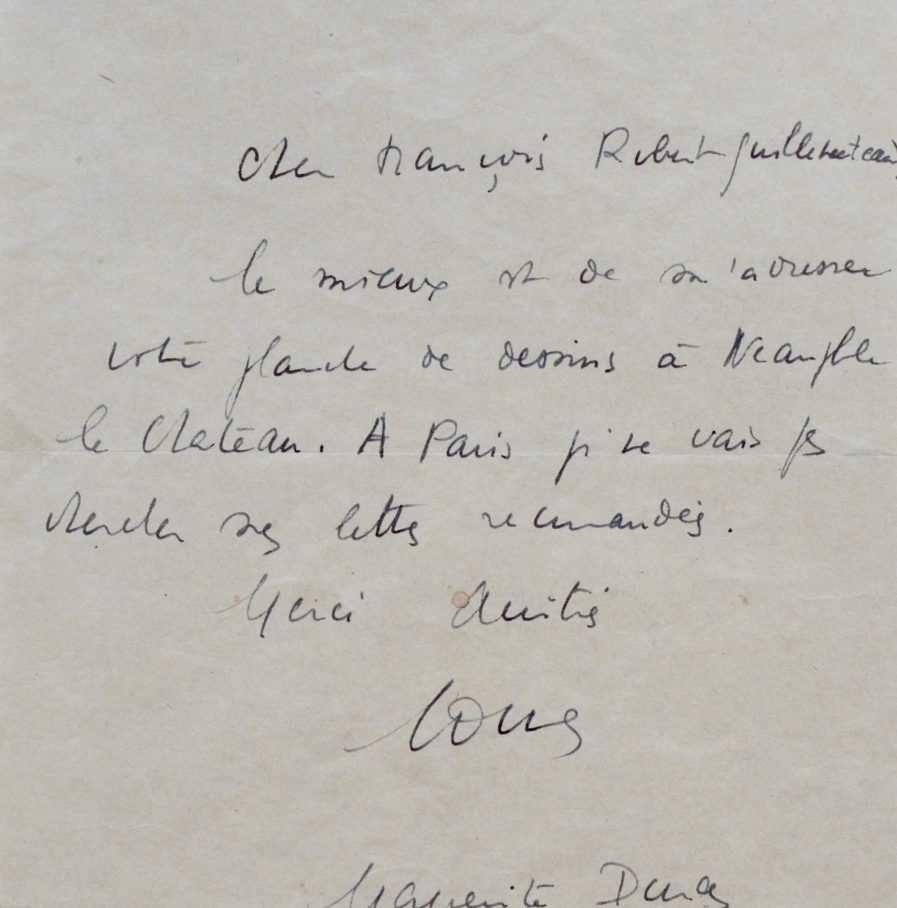 Cher François Robert Guilleboteau,
le mieux est de m'adresser
votre planche de dessins à Neauphle
le Château. A Paris je ne vais pas
chercher mes lettres recommandées.
Merci Amitiés
Marguerite Duras